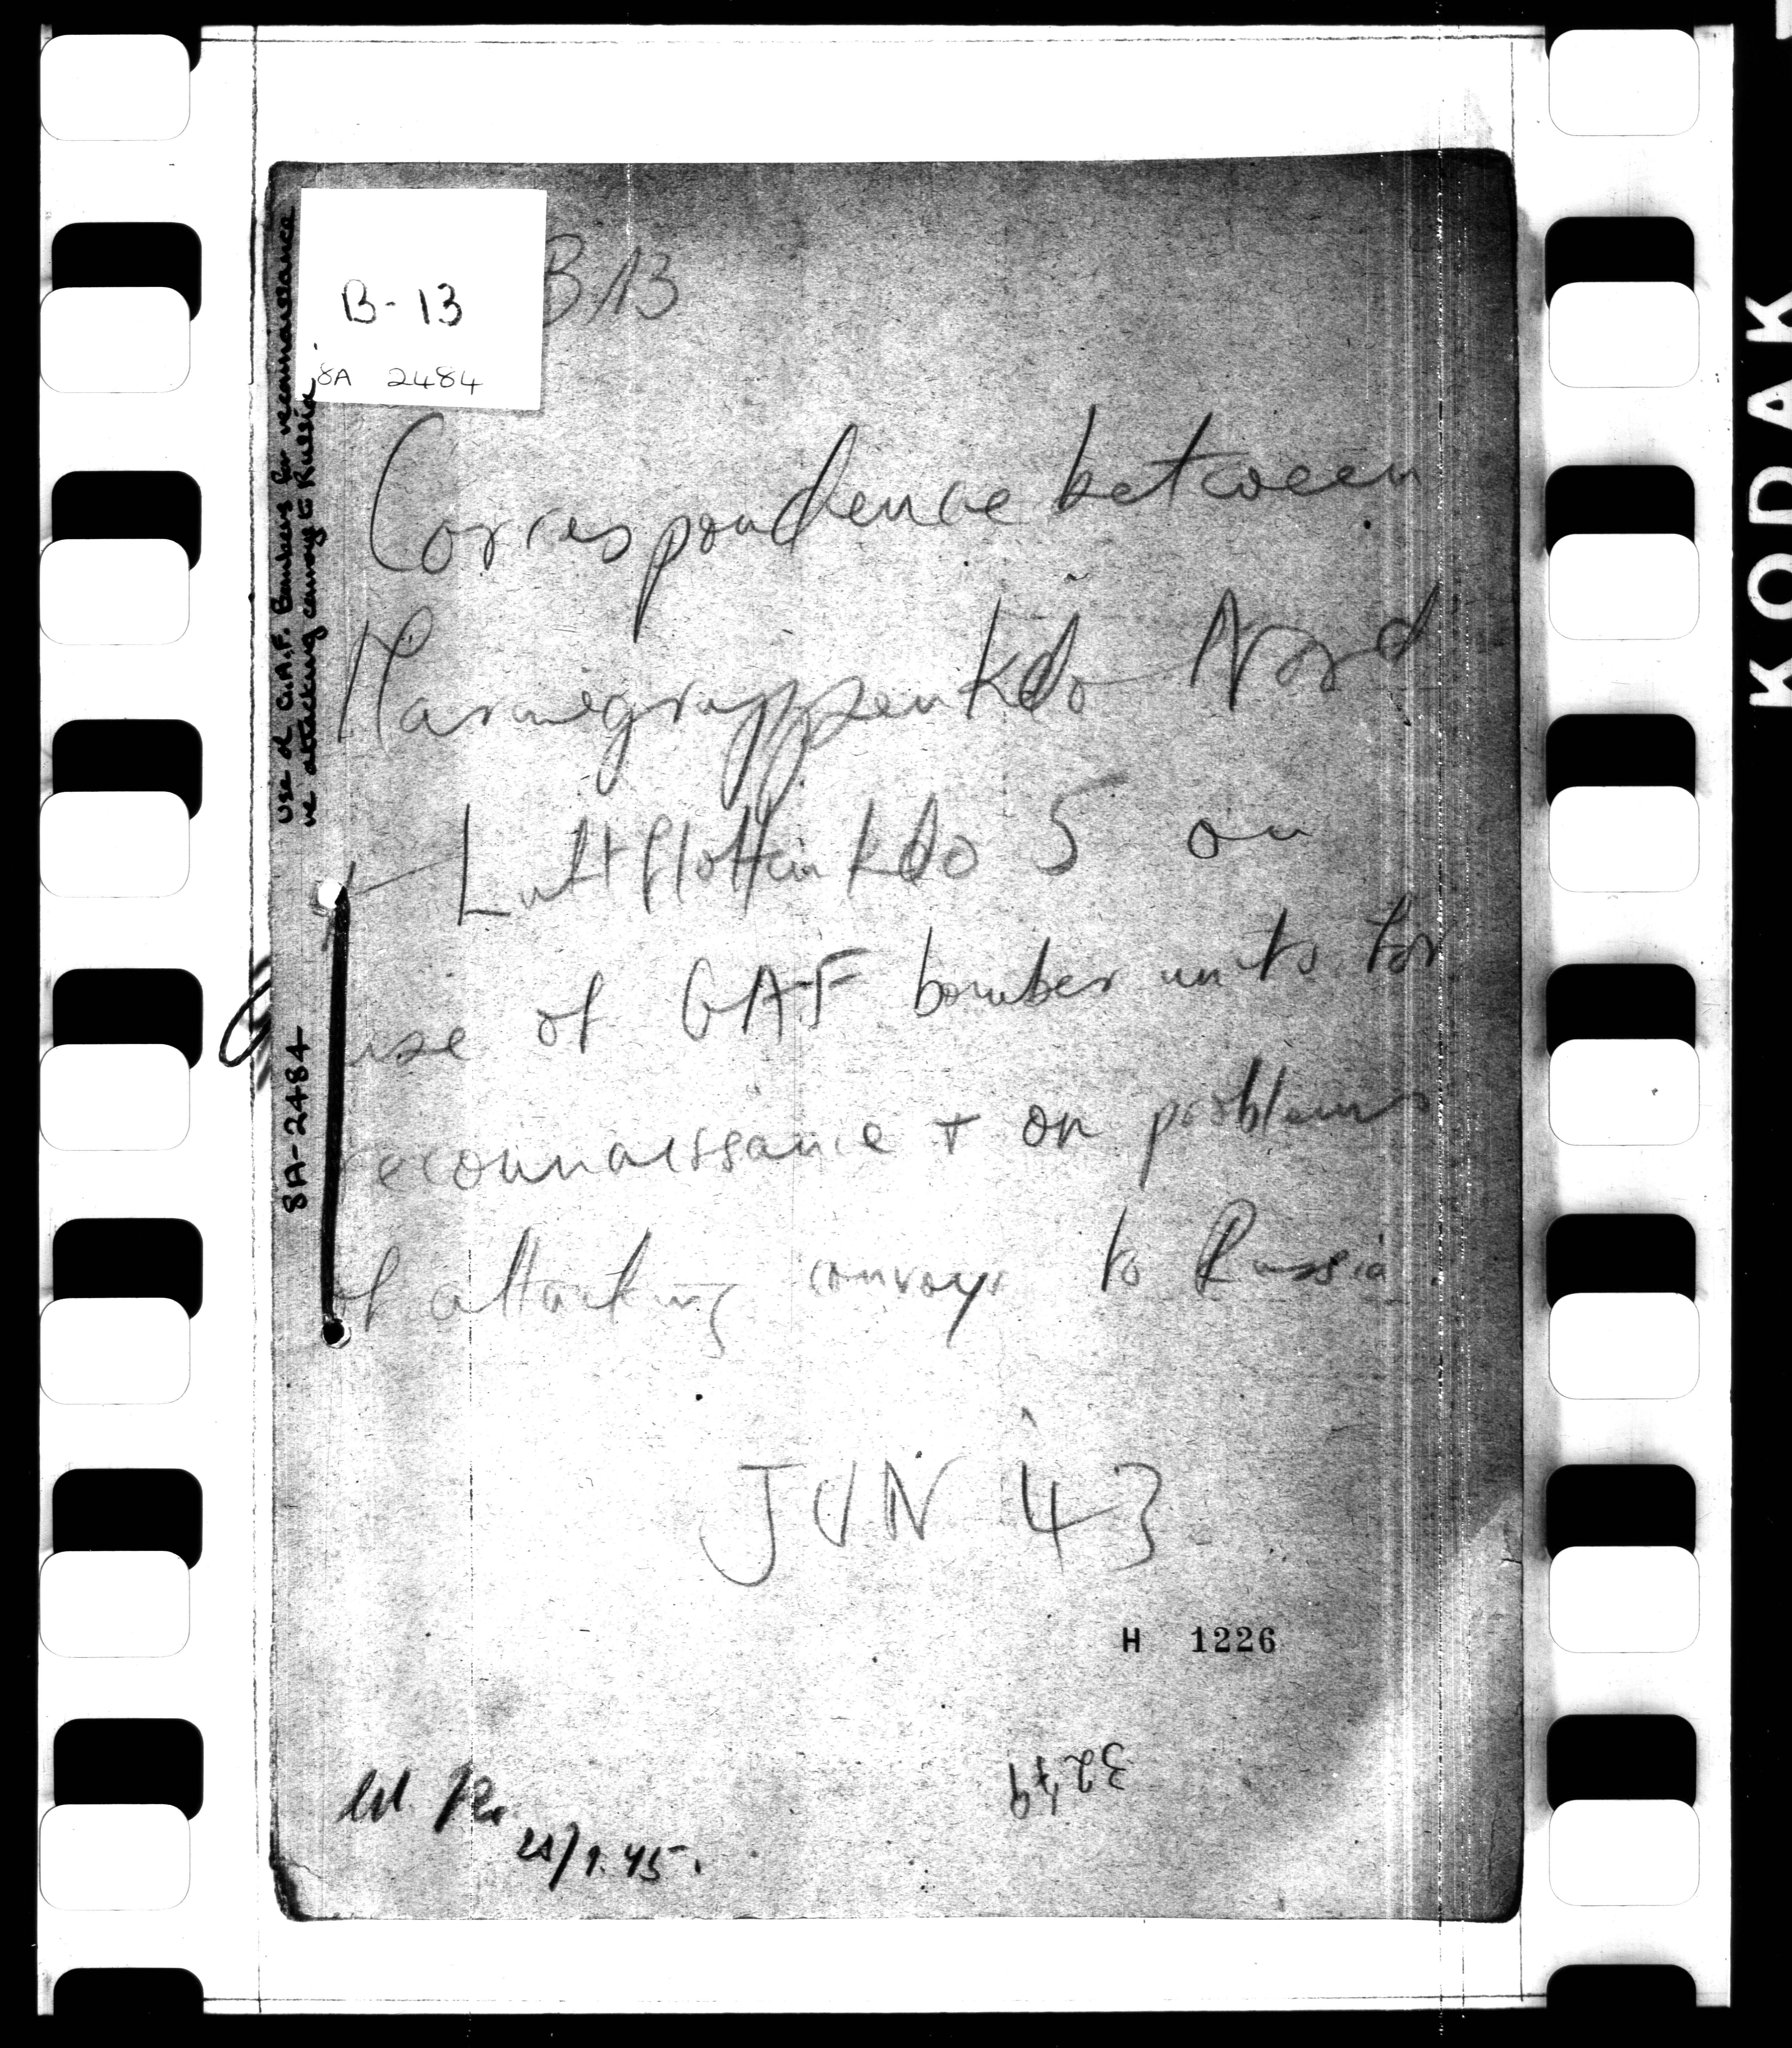 B-13
8A 2484
B/13
Correspondence between
Marinegruppenkdo Nord
+ Luftflottenkdo 5 on
use of GAF bomber units for
reconnaissance + on problems
of attacking convoys to Russia
JUN 43
H 1226
32479
/9.45.
Use of G.A.F. Bombers for reconnaissance
attacking convoys to Russia.
8A-2484
KODAK